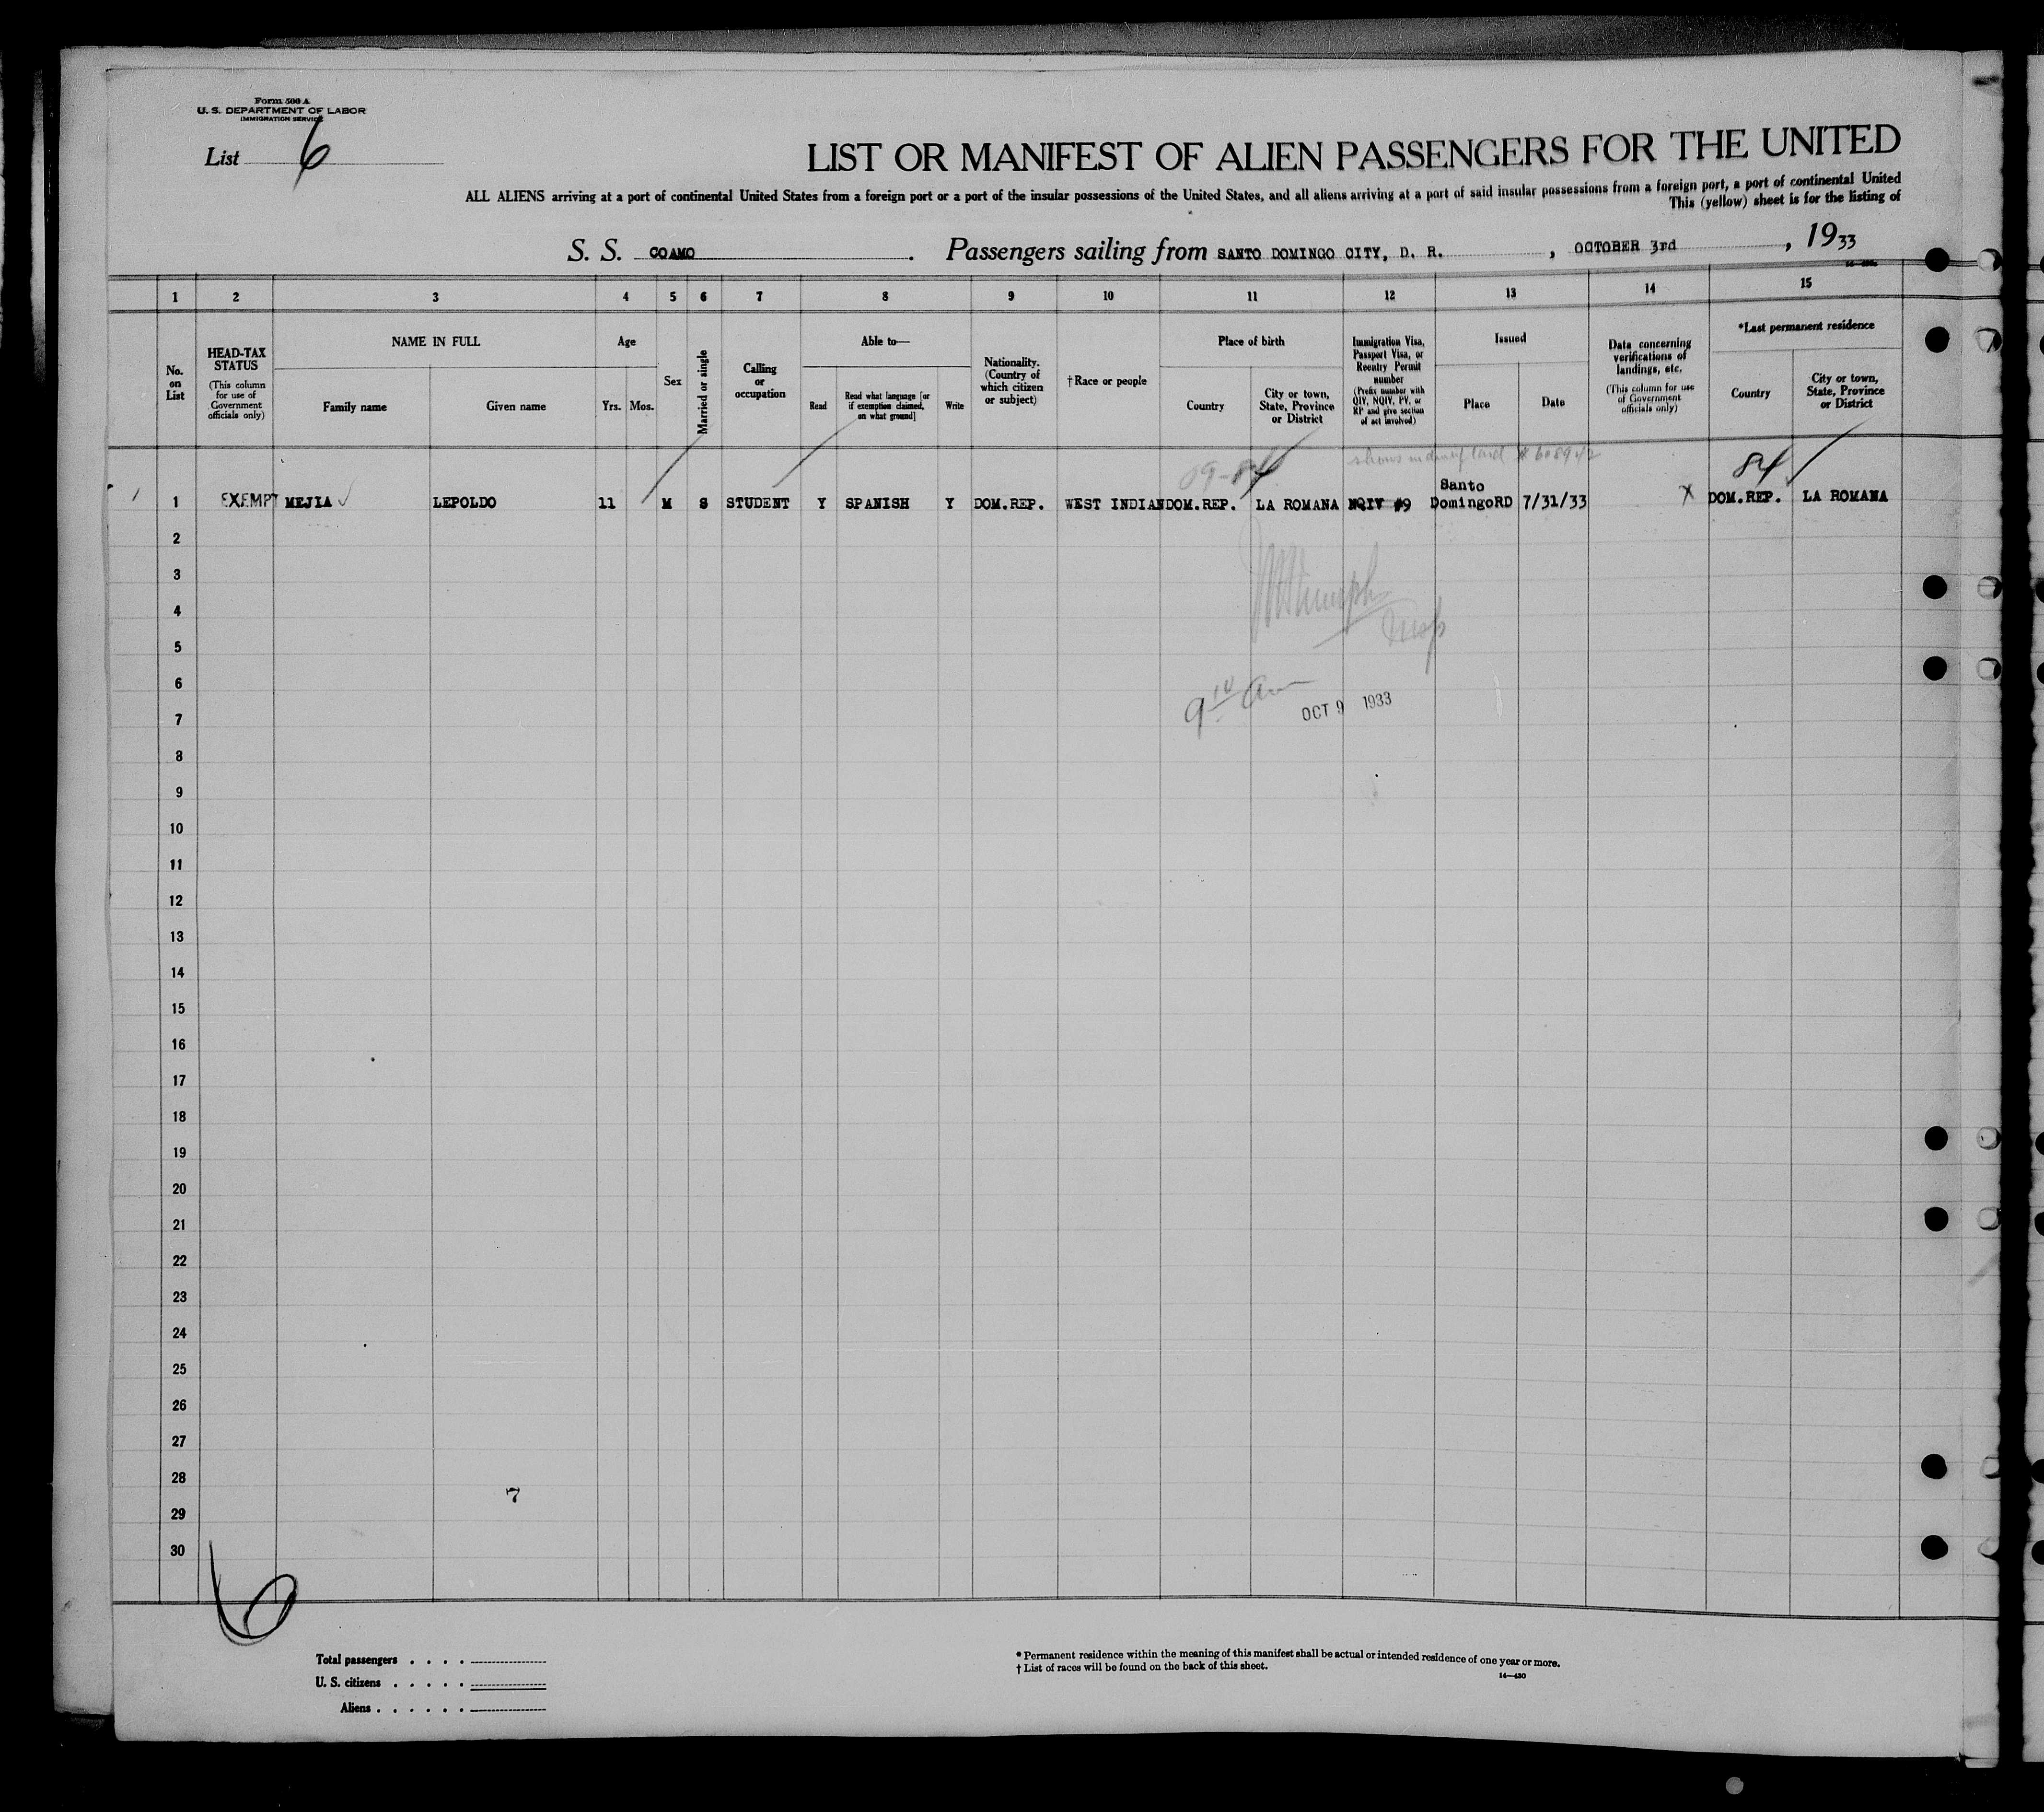 Form 500 A
U. S. DEPARTMENT OF LABOR
IMMIGRATION SERVICE
List 6
LIST OR MANIFEST OF ALIEN PASSENGERS FOR THE UNITED
ALL ALIENS arriving at a port of continental United States from a foreign port or a port of the insular possessions of the United States, and all aliens arriving at a port of said insular possessions from a foreign port, a port of continental United
This (yellow) sheet is for the listing of
S. S. COAMO. Passengers sailing from SANTO DOMINGO CITY, D. R., OCTOBER 3rd, 1933
1 2 3 4 5 6 7 8 9 10 11 12 13 14 15
No. on List
HEAD-TAX STATUS
(This column for use of Government officials only)
NAME IN FULL
Family name
Given name
Age
Yrs. Mos.
Sex
Married or single
Calling or occupation
Able to—
Read
Read what language [or if exemption claimed, on what ground]
Write
Nationality. (Country of which citizen or subject)
†Race or people
Place of birth
Country
City or town, State, Province or District
Immigration Visa, Passport Visa, or Reentry Permit number
(Prefix number with QIV, NQIV, PV, or RP and give section of act involved)
Issued
Place
Date
Data concerning verifications of landings, etc.
(This column for use of Government officials only)
*Last permanent residence
Country
City or town, State, Province or District
09-84
84
1 EXEMPT MEJIA LEPOLDO 11 M S STUDENT Y SPANISH Y DOM.REP. WEST INDIAN DOM.REP. LA ROMANA NQIV #9 Santo DomingoRD 7/31/33 X DOM.REP. LA ROMANA
2
3
4
5
6
7
OCT 9 1933
8
9
10
11
12
13
14
15
16
17
18
19
20
21
22
23
24
25
26
27
28
7
29
30
6
Total passengers . . . .
U. S. citizens . . . . .
Aliens . . . . . .
* Permanent residence within the meaning of this manifest shall be actual or intended residence of one year or more.
† List of races will be found on the back of this sheet.
14—430